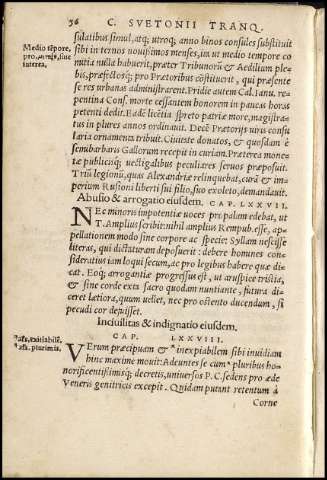 56 C. SVETONII TRANQ.
sulatibus simul, atq; utroq; anno binos consules substituit
Medio tēpore,
pro, utrūq, siue
interea.
sibi in ternos nouissimos menses, ita ut medio tempore co
mitia nulla habuerit, præter Tribunorū & Aedilium ple-
bis, præfectosq; pro Prætoribus cōstituerit, qui præsente
se res urbanas administrarent. Pridie autem Cal. Ianu. re
pentina Cons. morte cessantem honorem in paucas horas
petenti dedit. Eadē licētia spreto patrie more, magistra=
tus in plures annos ordinauit. Decē Prætorijs uiris consu
laria ornamenta tribuit. Ciuitate donatos, & quosdam è
semibarbaris Gallorum recepit in curiam. Præterea mone-
tæ publicisq; uectigalibus peculiares seruos præposuit.
Triū legionū, quas Alexandriæ relinquebat, curā & im
perium Rufioni liberti sui filio, suo exoleto, demandauit.
Abusio & arrogatio eiusdem. CAP. LXXVII.
NEc minoris impotentiæ uoces propalam edebat, ut
T. Amplius scribit: nihil amplius Rempub. esse, ap-
pellationem modo sine corpore ac specie: Syllam nescisse
literas, qui dictaturam deposuerit: debere homines con-
sideratius iam loqui secum, ac pro legibus habere quæ di-
cat. Eoq; arrogantiæ progressus est, ut aruspice tristia,
& sine corde exta sacro quodam nuntiante, futura di
ceret lætiora, quum uellet, nec pro ostento ducendum, si
pecudi cor defuisset.
Inciuilitas & indignatio eiusdem.
CAP. LXXVIII.
als, exitiabilē.
als. plurimis.
VErum præcipuam & inexpiabilem sibi inuidiam
hinc maxime mouit: Adeuntes se cum pluribus ho-
norificentissimisq; decretis, uniuersos P. C. sedens pro æde
Veneris genitricis excepit. Quidam putant retentum à
Corne